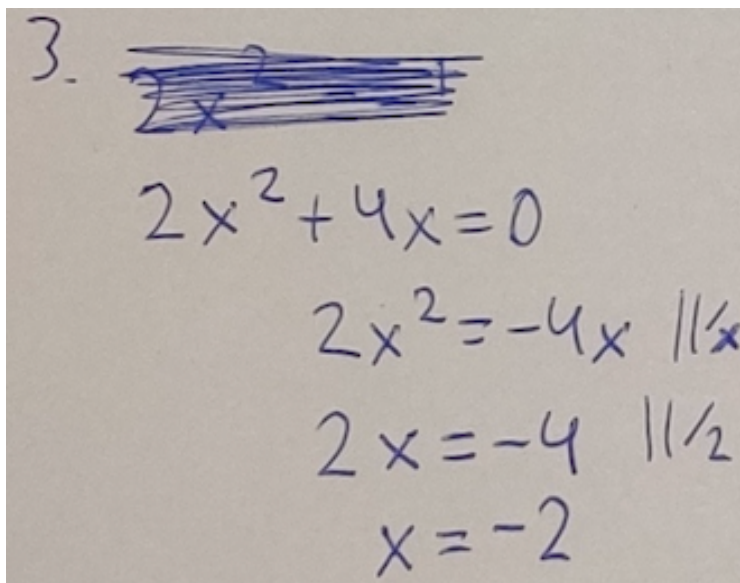 3.
2x²+4x=0
2x²=-4x ||/x
2x=-4 ||/2
x=-2